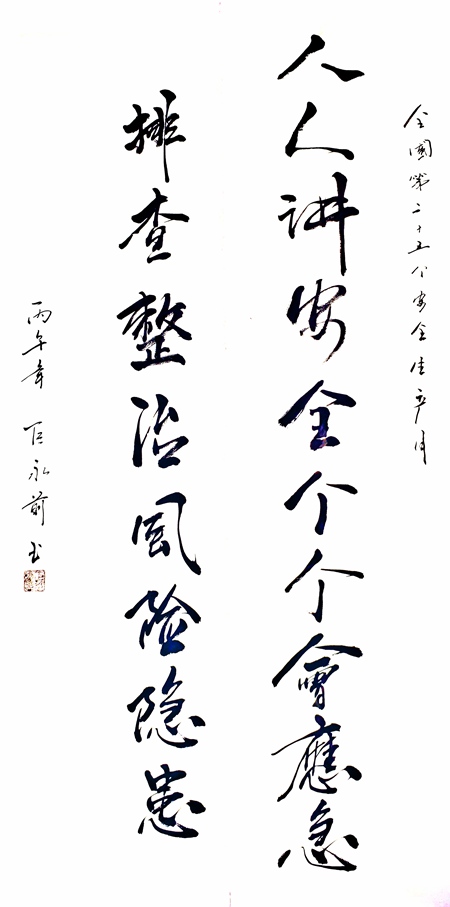 全國第二十五个安全生产月
人人讲安全个个會應急
排查整治风险隐患
丙午 永前书